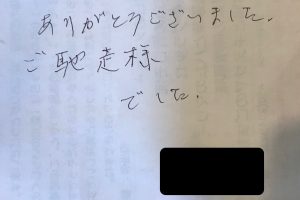 ありがとうございました.
ご馳走様
でした.